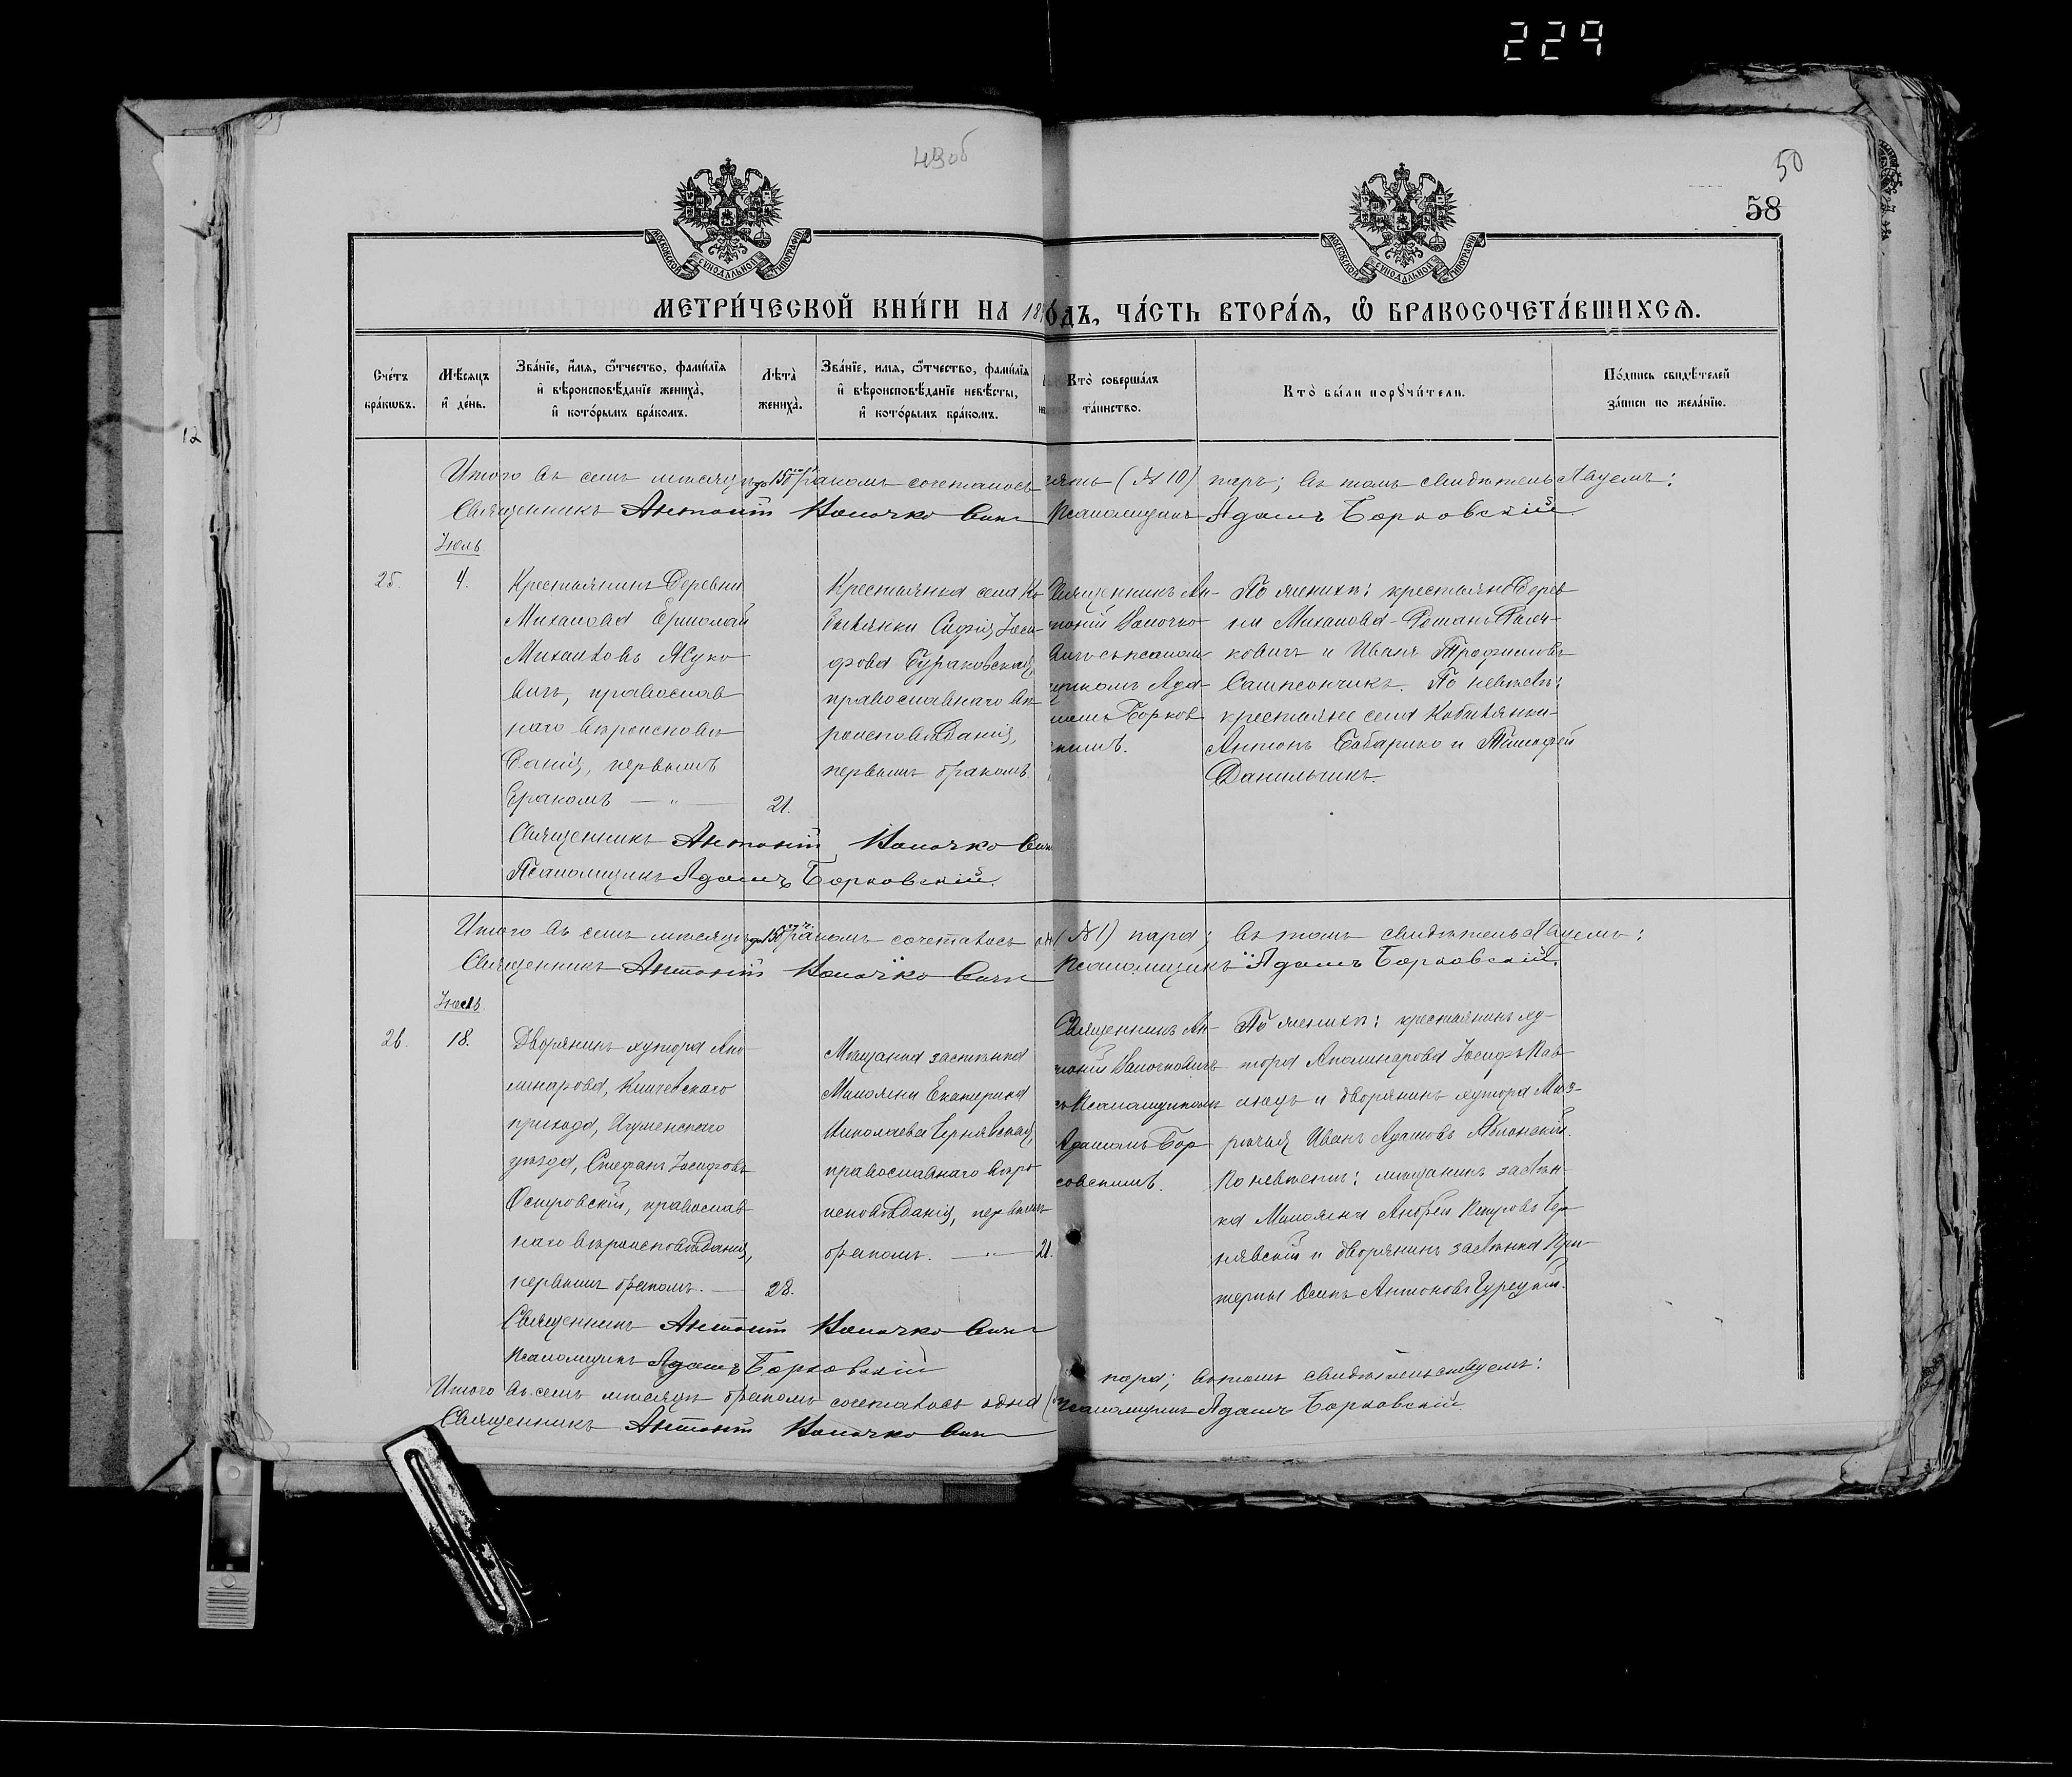 229
49об
50
58
12
МОСКОВСКОЙ СѴНОДАЛЬНОЙ ТИПОГРАФІИ
МОСКОВСКОЙ СѴНОДАЛЬНОЙ ТИПОГРАФІИ
МЕТРИ́ЧЕСКОЙ КНИ́ГИ НА 18 ОДЪ, ЧА́СТЬ ВТОРА́Ѧ, Ѽ БРАКОСОЧЕТА́ВШИХСѦ.
Сче́тъ бра́кѡвъ.
Мѣ́сѧцъ и҆ де́нь.
Зва́нїе, и҆́мѧ, ѻ҆́тчество, фами́лїѧ
и҆ вѣроисповѣ́данїе жениха̀,
и҆ кото́рымъ бра́комъ.
Лѣта̀ жениха̀.
Зва́нїе, имѧ, ѻ҆́тчество, фами́лїѧ
и҆ вѣроисповѣ́данїе невѣ́сты,
и҆ кото́рымъ бра́комъ.
Кто̀ соверша́лъ
та́инство.
Кто̀ бы́ли порꙋчи́тели.
По́дпись свидѣ́телей
за́писи по жела́нїю.
Итого въ семъ мѣсяцѣ бракомъ сочеталось сять (№ 10) паръ; въ томъ свидѣтельствуемъ:
Священникъ Антоній Наночко вичъ Псаломщикъ Адамъ Борковскій
Іюль
25. 4.
Крестьянинъ деревни
Михалова Ермолай
Михаиловъ Жуко
вичъ, православ
наго вѣроисповѣ
данія, первымъ
бракомъ — " — 21.
Крестьянка села Ко
былянки Софія Іоси-
фова Бураковская,
православнаго вѣ-
роисповѣданія,
первымъ бракомъ.
Священникъ Ан-
тоній Наночко
вичъ съ псалом
щикомъ Ада-
момъ Борков
скимъ.
По женихѣ: крестьяне дерев
ни Михалова-
ковичъ и Иванъ Трофимовъ
Самсончикъ. По невѣстѣ:
крестьяне села Кобылянки-
Антонъ Бабарико и Тимофей
Данильчикъ.
Священникъ Антоній Наночко вичъ
Псаломщикъ Адамъ Борковскій.
Итого въ семъ мѣсяцѣ бракомъ сочеталось (№ 1) пара; въ томъ свидѣтельствуемъ:
Священникъ Антоній Наночко вичъ Псаломщикъ Адамъ Борковскій.
26. 18.
Дворянинъ хутора Апо
линарова, Кличевскаго
прихода, Игуменскаго
уѣзда, Стефанъ Іосифовъ
Островскій, православ
наго вѣроисповѣданія,
первымъ бракомъ. — 28.
Мѣщанка застѣнка
Малояни Екатерина
Николаева Чернявская,
православнаго вѣро
исповѣданія, первымъ
бракомъ. — " — 21.
Священникъ Ан-
тоній Наночковичъ
съ Псаломщикомъ
Адамомъ Бор
ковскимъ.
По женихѣ: крестьянинъ ху-
тора Аполинарова Іосифъ Пав
и дворянинъ хутора Меж-
рѣчья Иванъ Адамовъ Яблонскій.
По невѣстѣ: мѣщанинъ застѣн-
ка Малояна Андрей Петровъ Чер
нявскій и дворянинъ застѣнка При-
терпы Осипъ Антоновъ Гурецкій.
Священникъ Антоній Наночко вичъ
Псаломщикъ Адамъ Борковскій
Итого въ семъ мѣсяцѣ бракомъ сочеталось одна ( пара; въ томъ свидѣтельствуемъ:
Священникъ Антоній Наночко вичъ Псаломщикъ Адамъ Борковскій